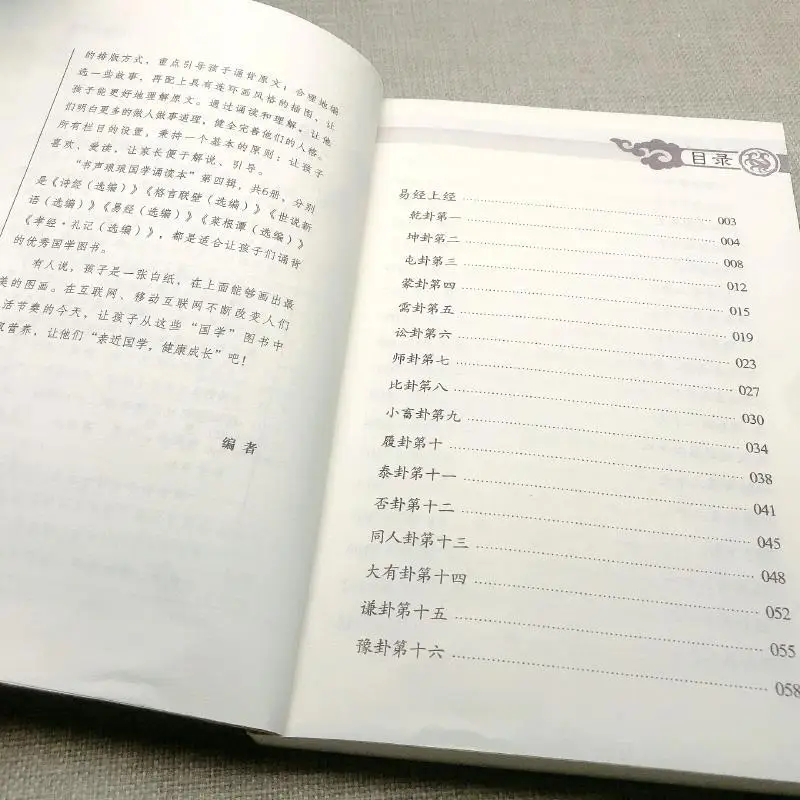 的排版方式，重点引导孩子诵背原文；合理地编
选一些故事，再配上具有连环画风格的插图，让
孩子能更好地理解原文。通过诵读和理解，让他
们明白更多的做人做事道理，健全完善他们的人格。
所有栏目的设置，秉持一个基本的原则：让孩子
喜欢、爱读，让家长便于解说、引导。
“书声琅琅国学诵读本”第四辑，共6册，分别
是《诗经（选编）》《格言联璧（选编）》《世说新
语（选编）》《易经（选编）》《菜根谭（选编）》
《孝经·礼记（选编）》，都是适合让孩子们诵背
的优秀国学图书。
有人说，孩子是一张白纸，在上面能够画出最
美的图画。在互联网、移动互联网不断改变人们
活节奏的今天，让孩子从这些“国学”图书中
营养，让他们“亲近国学，健康成长”吧！
编者
目录
易经上经 003
乾卦第一 004
坤卦第二 008
屯卦第三 012
蒙卦第四 015
需卦第五 019
讼卦第六 023
师卦第七 027
比卦第八 030
小畜卦第九 034
履卦第十 038
泰卦第十一 041
否卦第十二 045
同人卦第十三 048
大有卦第十四 052
谦卦第十五 055
豫卦第十六 058